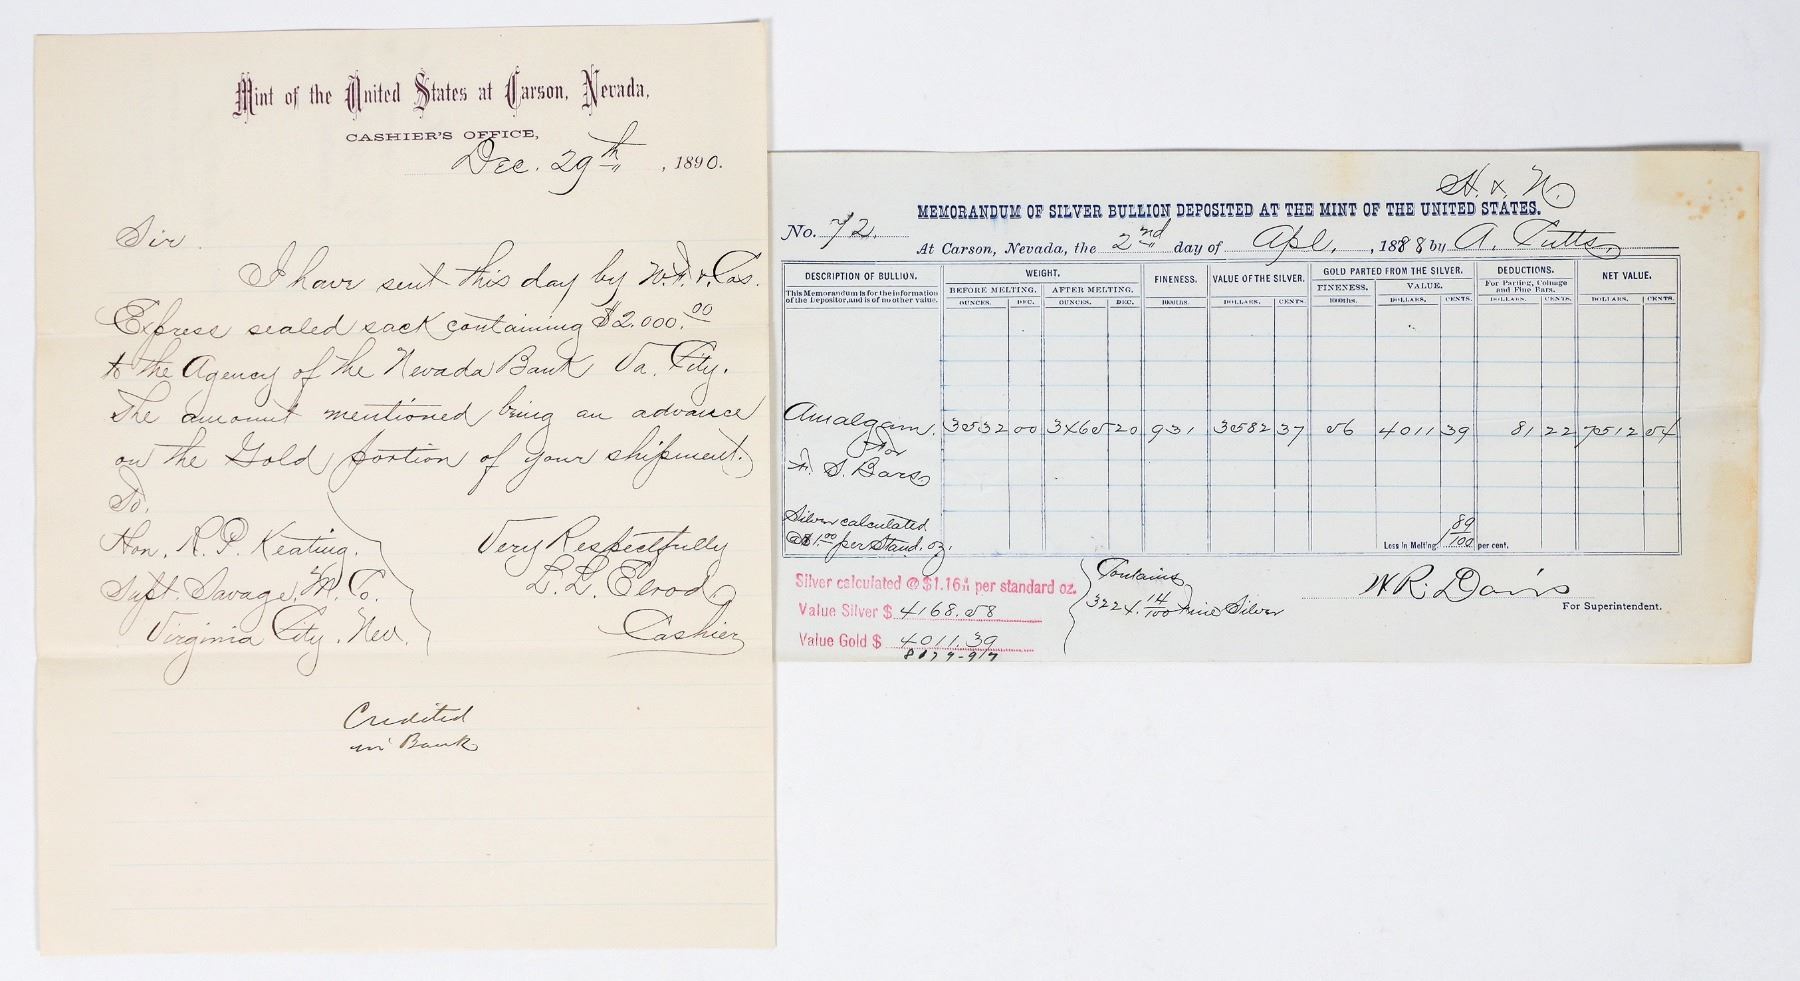 Mint of the United States at Carson, Nevada,
CASHIER'S OFFICE,
Dec. 29th, 1890.
Sir.
I have sent this day by W. F. & Cos.
Express sealed sack containing $2.000.00
to the Agency of the Nevada Bank, Va. City.
The amount mentioned being an advance
on the Gold portion of your shipment.
To.
Hon. R. P. Keating.
Supt. Savage M. Co.
Virginia City. Nev.
Very Respectfully
L. L. Elrod,
Cashier
Credited
in Bank
H. & N.
MEMORANDUM OF SILVER BULLION DEPOSITED AT THE MINT OF THE UNITED STATES.
No. 72.
At Carson, Nevada, the 2nd day of Apl., 1888 by A. Tutts,
DESCRIPTION OF BULLION. WEIGHT. FINENESS. VALUE OF THE SILVER. GOLD PARTED FROM THE SILVER. DEDUCTIONS. NET VALUE.
This Memorandum is for the information of the Depositor, and is of no other value.
BEFORE MELTING. AFTER MELTING. FINENESS. VALUE. For Parting, Coinage and Fine Bars.
OUNCES. DEC. OUNCES. DEC. 1000ths. DOLLARS. CENTS. 1000ths. DOLLARS. CENTS. DOLLARS. CENTS. DOLLARS. CENTS.
Amalgam. 3532 00 3465 20 931 3582 37 56 4011 39 81 22 7512 54
for
F. S. Bars
Silver calculated
@ $1.00 per Stand. oz.
Less in Melting 89/100 per cent.
Silver calculated @ $1.16 4/11 per standard oz.
Value Silver $ 4168.58
Value Gold $ 4011.39
8179-97
Contains
3224.14/100 fine Silver
W R. Davis
For Superintendent.